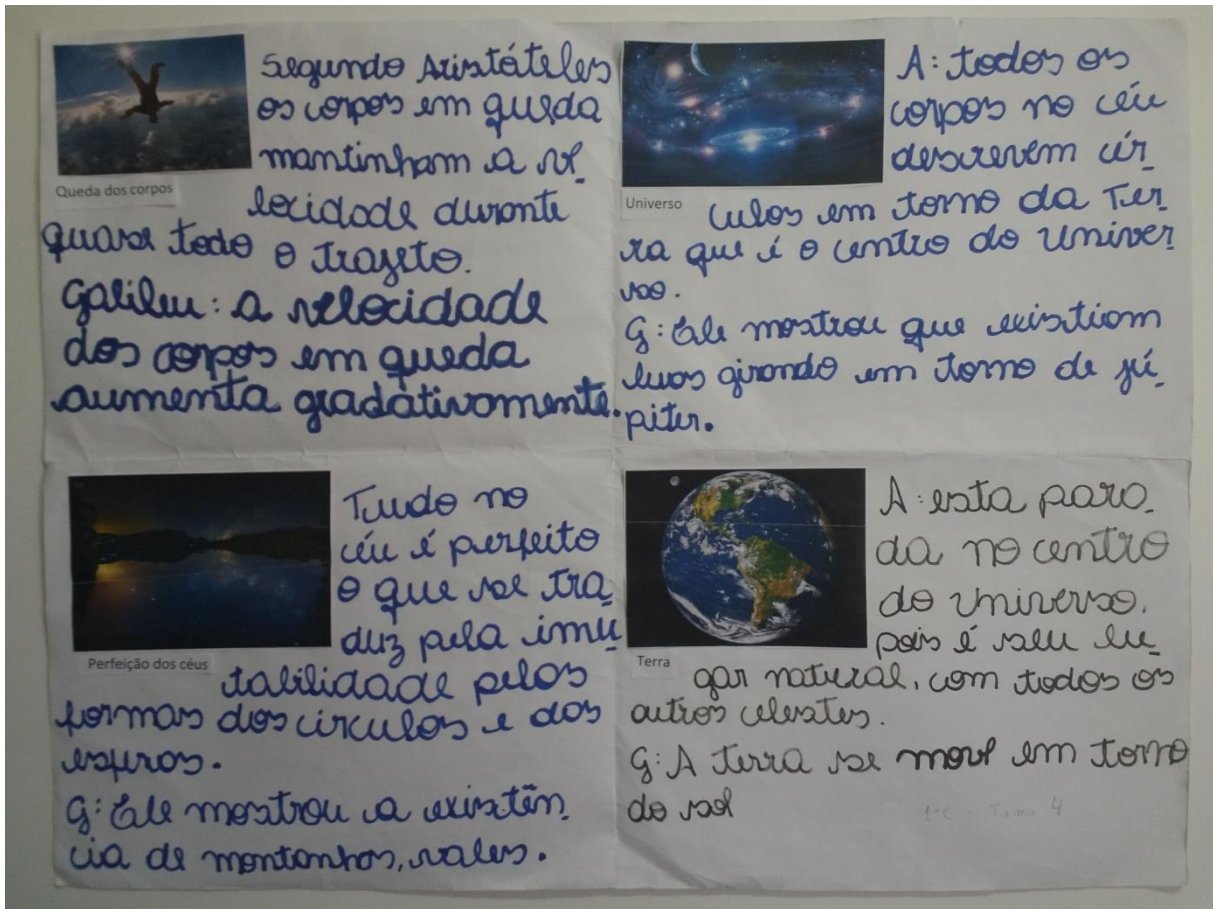 Segundo Aristóteles
os corpos em queda
mantinham a ve_
locidade durante
quase todo o trajeto.
Galileu: a velocidade
dos corpos em queda
aumenta gradativamente.
Queda dos corpos
A: todos os
corpos no céu
descrevem cír_
culos em torno da Ter_
ra que é o centro do Univer_
so.
G: Ele mostrou que existiam
luas girando em torno de jú_
piter.
Universo
Tudo no
céu é perfeito
o que se tra_
duz pela imu_
tabilidade pelas
formas dos circulos e das
esferas.
G: Ele mostrou a existên_
cia de montanhas, vales.
Perfeição dos céus
A: esta para_
da no centro
do universo,
pois é seu lu_
gar natural, com todos os
outros celestes.
G: A terra se move em torno
do sol
Terra
1ºC - Tema 4